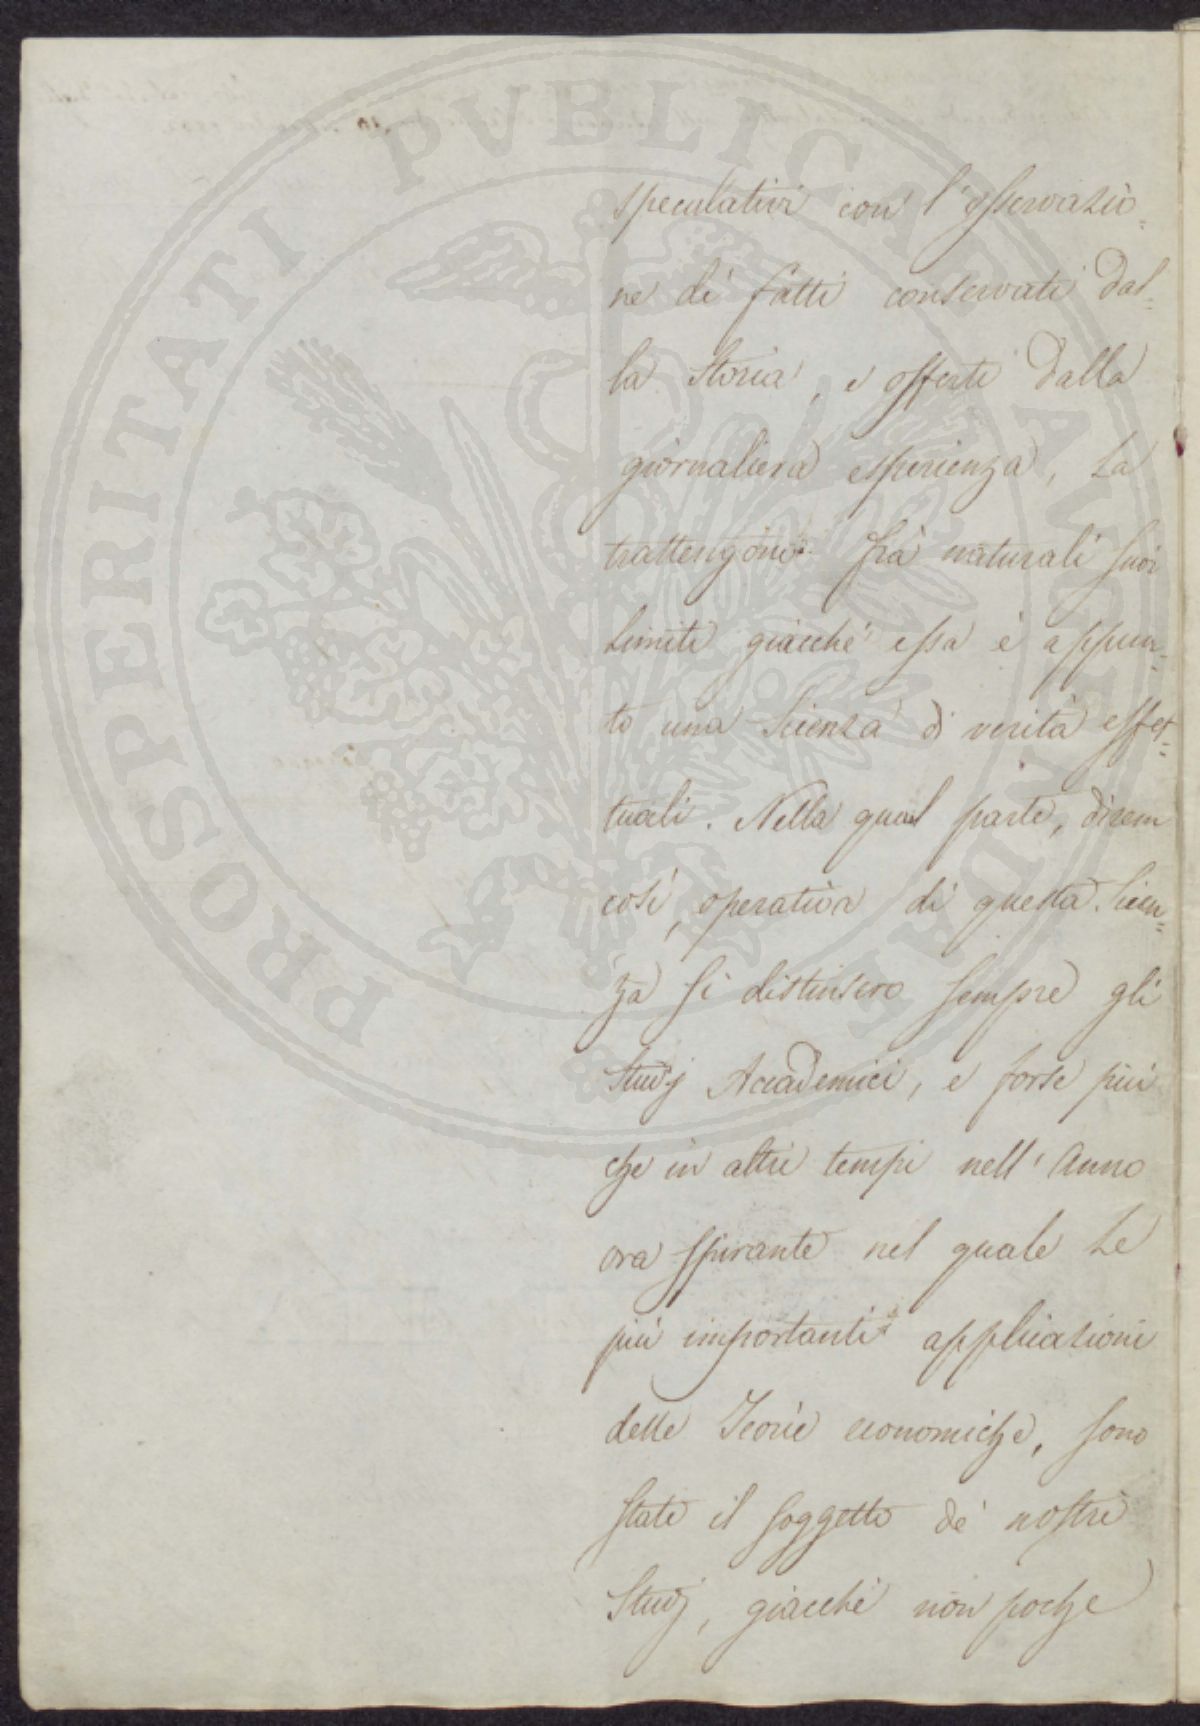 PROSPERITATI PVBLICAE AVGENDAE
speculativi con l'osservazio=
ne di fatti conservati dal=
la Storia, e offerti dalla
giornaliera esperienza, La
trattengono frà naturali suoi
Limiti giacchè essa è appun=
to una Scienza di verità effet=
tuali. Nella qual parte, direm
così, operativa di questa Scien=
za si distinsero sempre gli
Studj Accademici, e forse più
che in altri tempi nell'Anno
ora spirante nel quale Le
più importanti applicazioni
delle Teorie economiche, sono
state il soggetto de' nostri
Studj, giacchè non poche